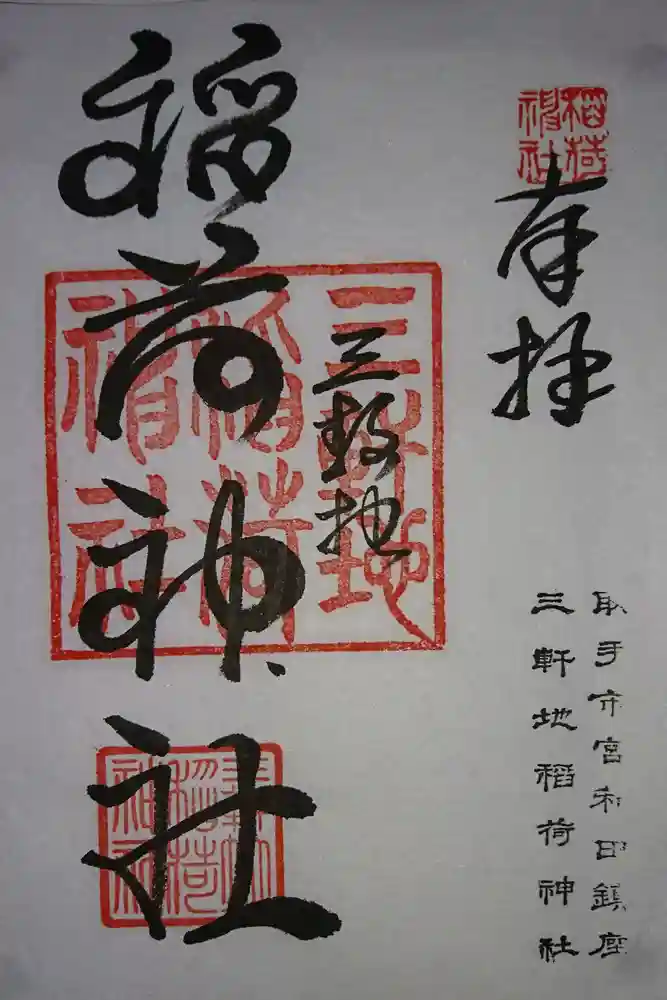 奉拝
取手市宮和田鎮座
三軒地稲荷神社
三軒地
稲荷神社
稲荷
神社
三軒地
稲荷
神社
三軒地
稲荷
神社